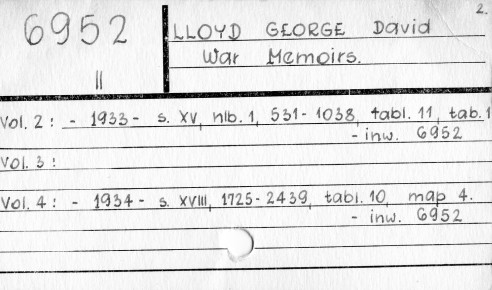 2.
6952 LLOYD GEORGE David
II War Memoirs.
Vol. 2 : - 1933 - s. XV, nlb. 1, 531-1038, tabl. 11, tab. 1
- inw. 6952
Vol. 3 :
Vol. 4 : - 1934 - s. XVIII, 1725-2439, tabl. 10, map 4.
- inw. 6952